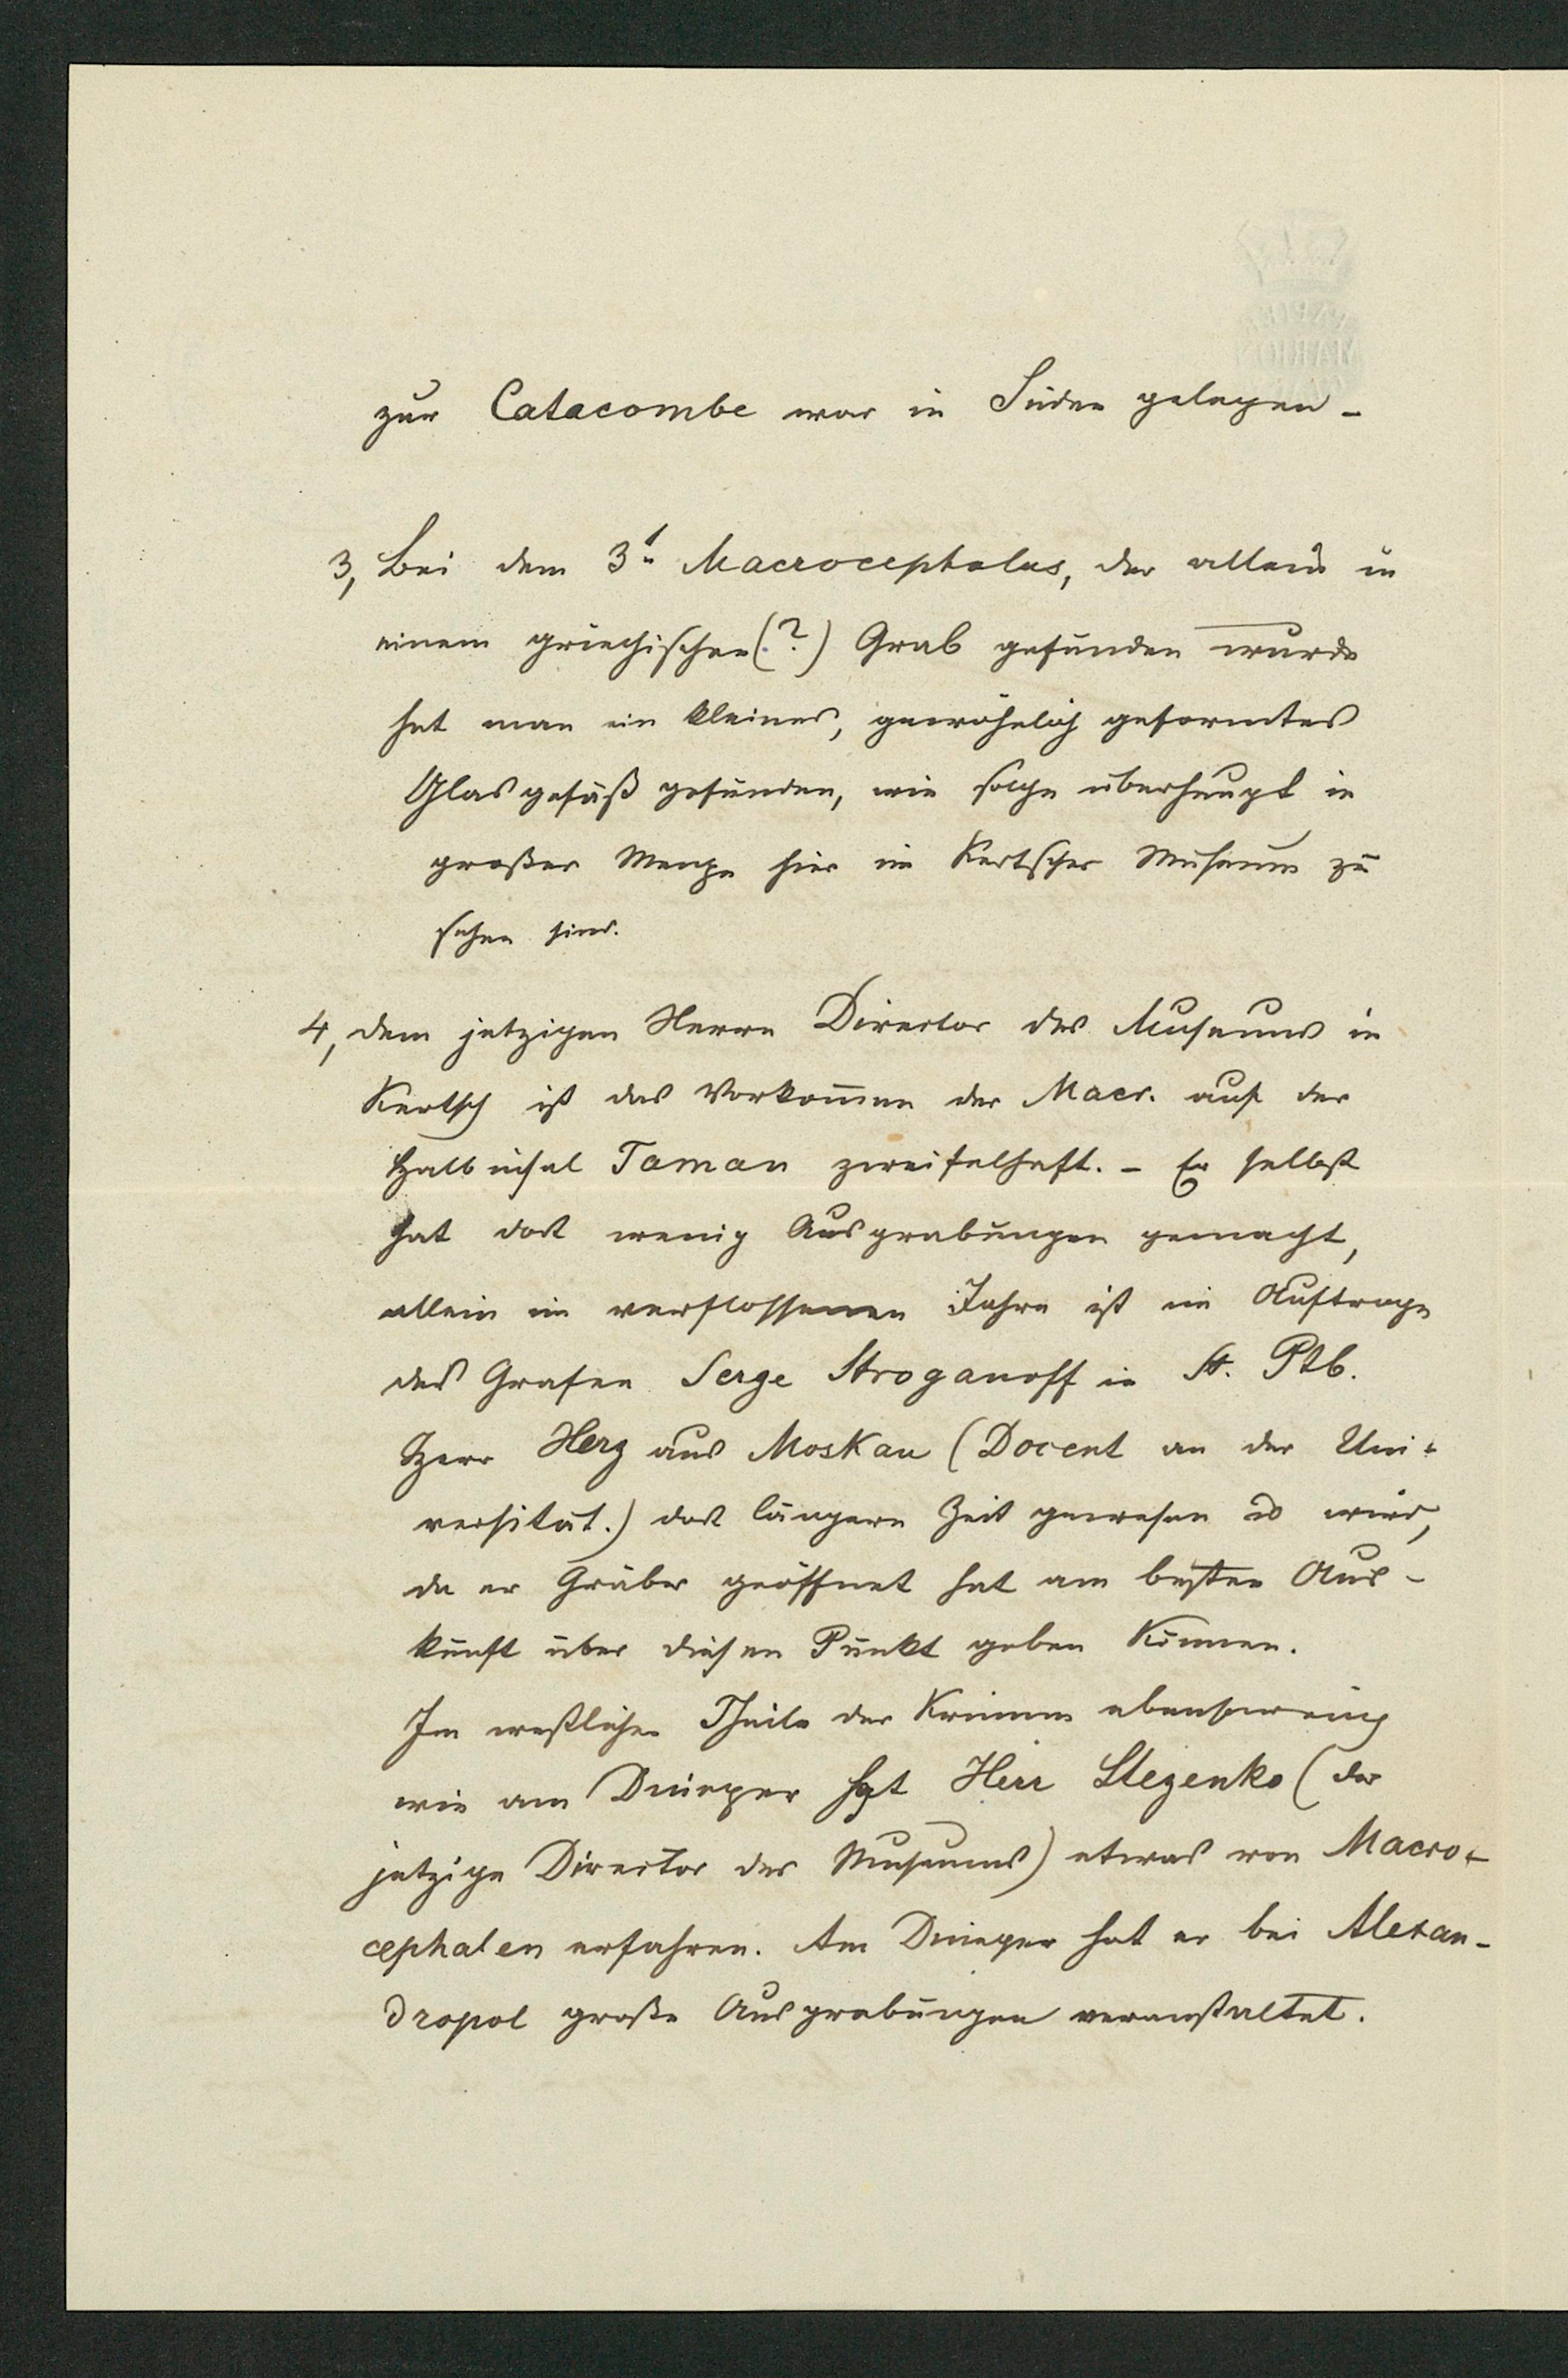 zur Catacombe war in Süden gelegen –
3, Bei dem 3t. Macrocephalus, der allein in
einem griechischen (?) Grab gefunden wurde
hat man ein kleines, gewöhnlich geformtes
Glasgefäß gefunden, wie solche überhaupt in
großer Menge hier im Kertscher Museum zu
sehen sind.
4, Dem jetzigen Herrn Director des Museums in
Kertsch ist das Vorkom̅en der Macr. auf der
Halbinsel Taman zweifelhaft. – Er selbst
hat dort wenig Ausgrabungen gemacht,
allein im verflossenen Jahre ist im Auftrage
des Grafen Serge Stroganoff in St. Ptb.
Herr Herz aus Moskau (Docent an der Uni-
versität.) dort längere Zeit gewesen u wird,
da er Gräber geöffnet hat am besten Aus-
kunft über diesen Punkt geben können.
Im westlichen Theile der Krimm ebensowenig
wie am Dnieper hat Herr (der
jetzige Director des Museums) etwas von Macro-
cephalen erfahren. Am Dnieper hat er bei Alexan-
dropol große Ausgrabungen veranstaltet.